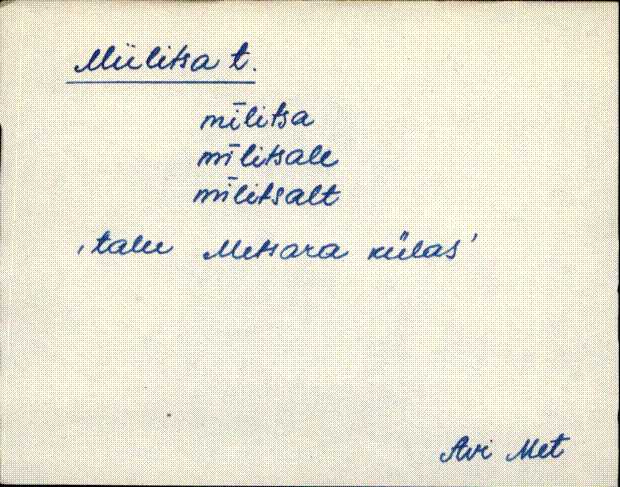 Miilitsa t.
mīlitsa
mīlitsale
mīlitsalt
'talu Metsara külas'
Avi Met